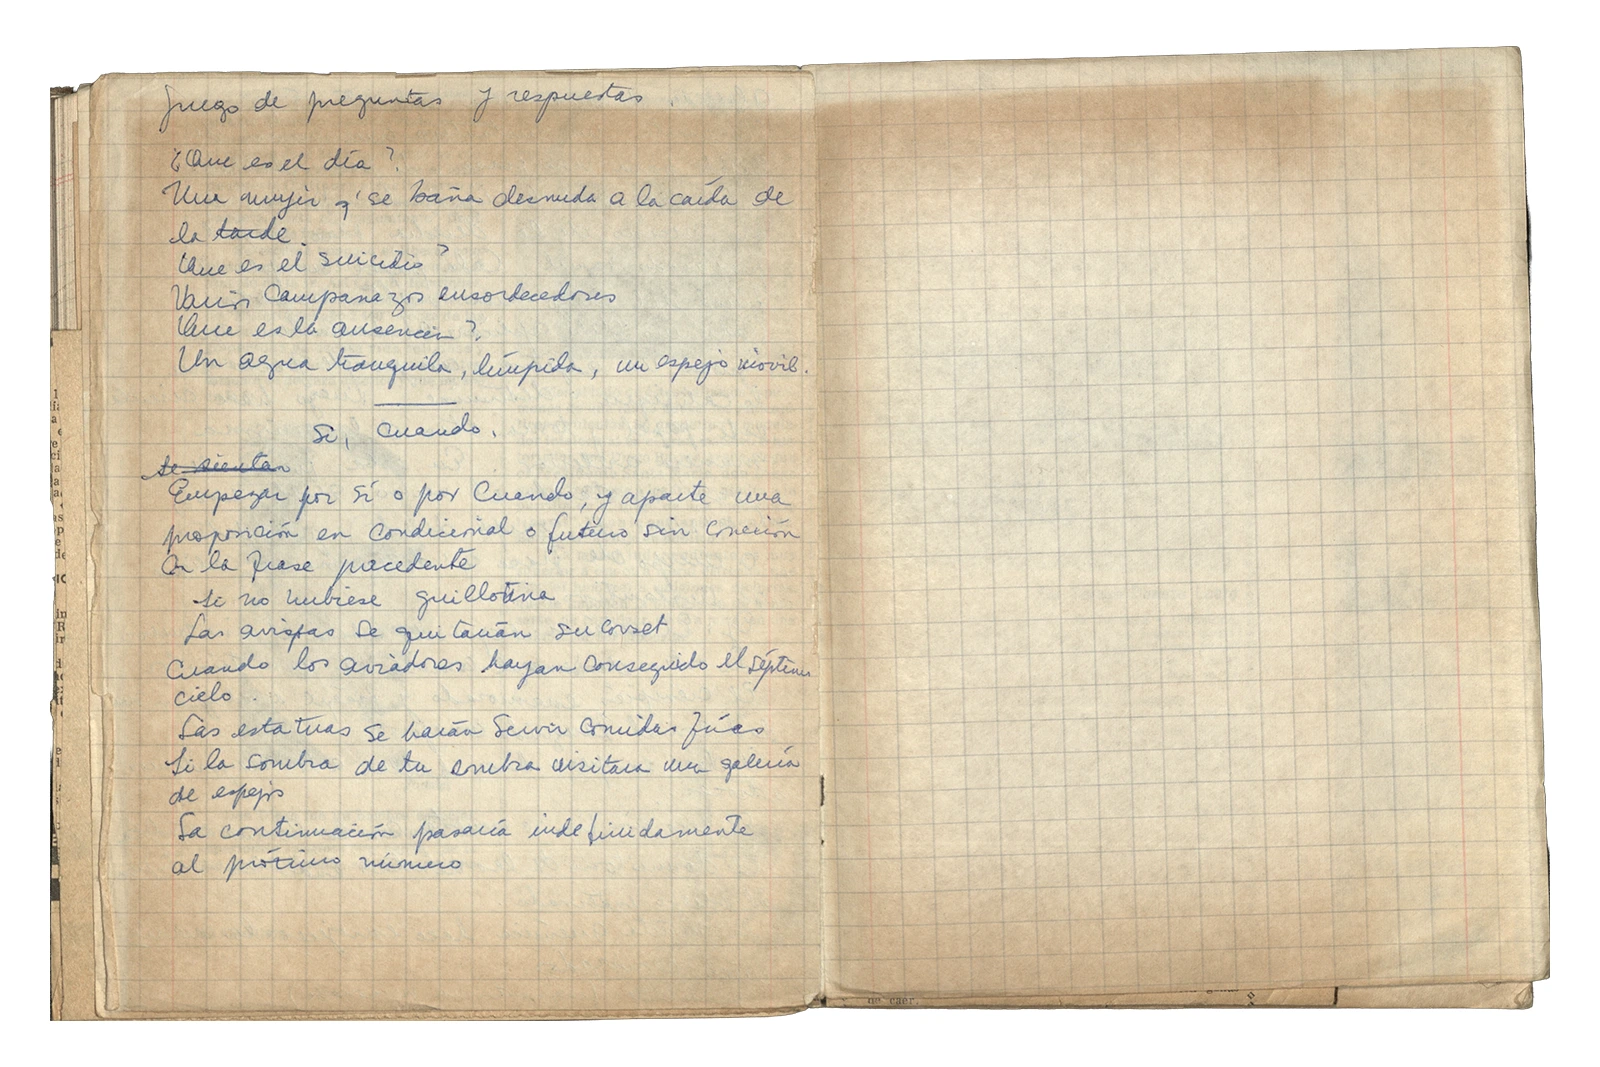 Juego de preguntas y respuestas.
¿Que es el día?
Una mujer q' se baña desnuda a la caída de
la tarde.
Que es el suicidio?
Varios campanazos ensordecedores
Que es la ausencia?
Un agua tranquila, límpida, un espejo movil.
Si, Cuando.
se sientan
Empezar por Sí o por Cuando, y aparte una
proposición en condicional o futuro sin coneción
con la frase precedente
Si no hubiese guillotina
Las avispas se quitarían su corset
Cuando los aviadores hayan conseguido el séptimo
cielo.
Las estatuas se harán servir comidas frías
Si la sombra de tu sombra visitara una galería
de espejos
La continuación pasaría indefinidamente
al próximo número
de caer.